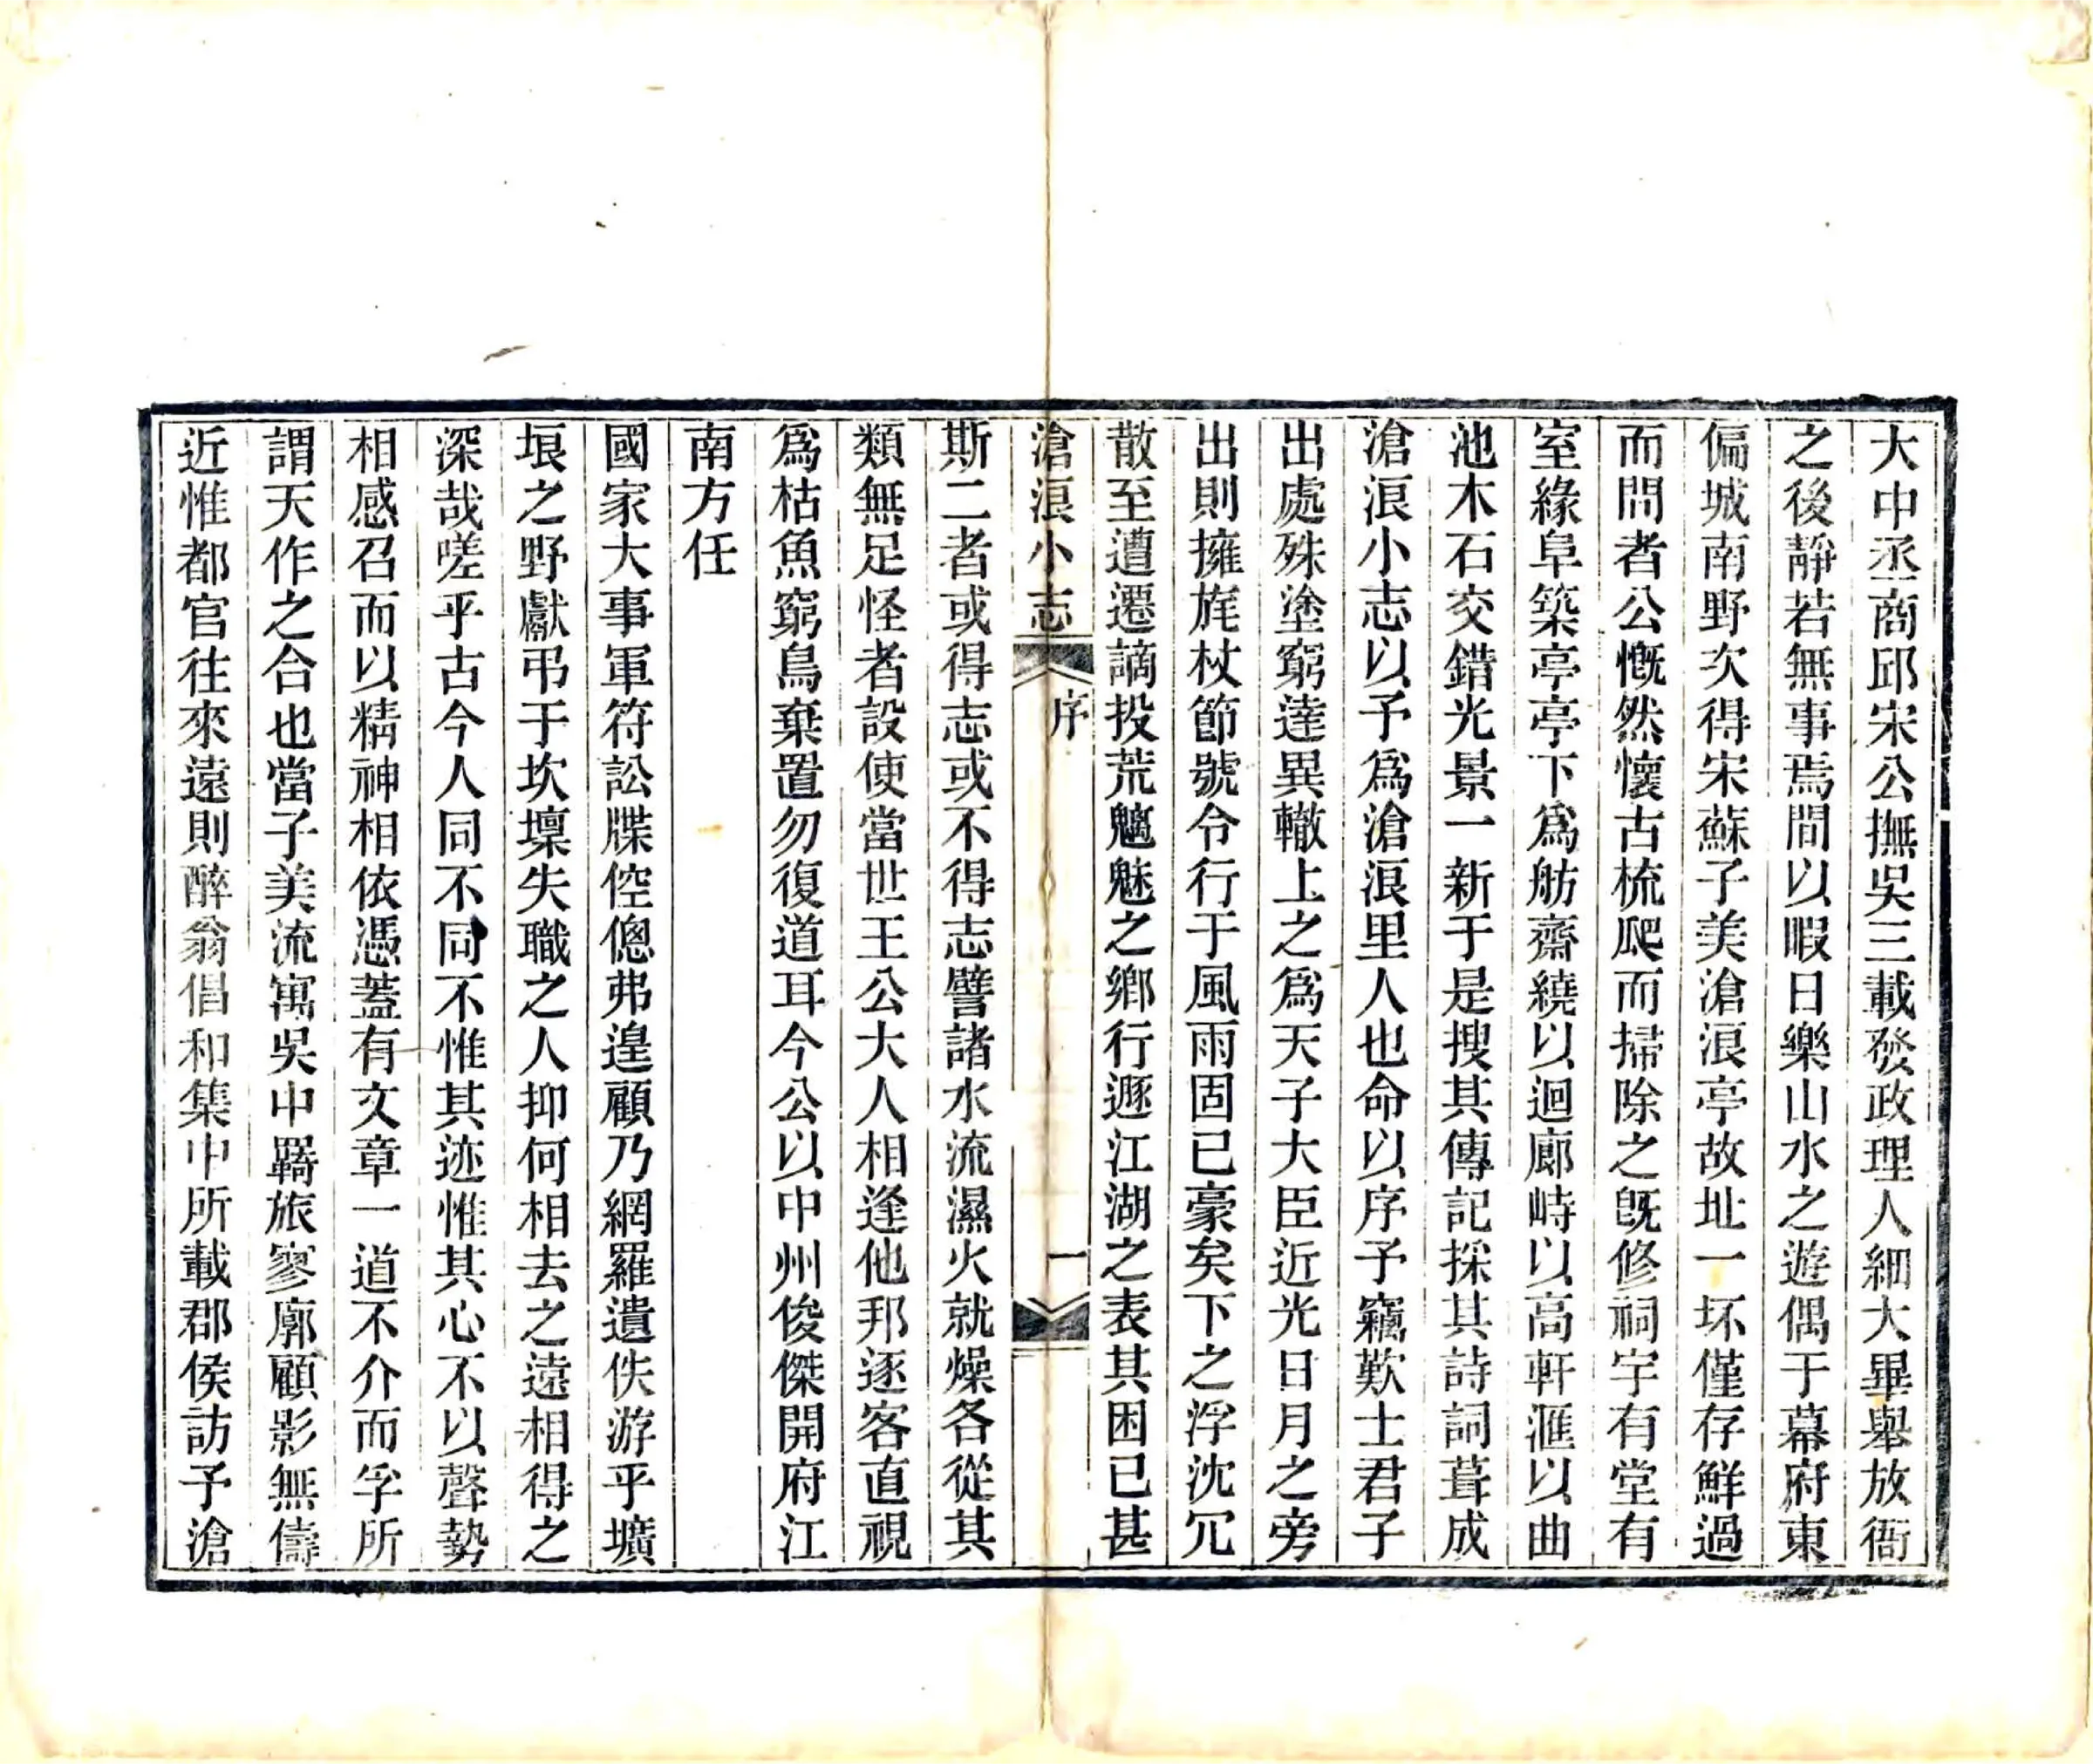 大中丞商邱宋公撫吳三載發政理人細大畢舉放衙
之後靜若無事焉間以暇日樂山水之遊偶于幕府東
偏城南野次得宋蘇子美滄浪亭故址一坏僅存鮮過
而問者公慨然懷古梳爬而掃除之旣修祠宇有堂有
室緣阜築亭亭下爲舫齋繞以迴廊峙以高軒滙以曲
池木石交錯光景一新于是搜其傳記採其詩詞葺成
滄浪小志以予爲滄浪里人也命以序予竊歎士君子
出處殊塗窮達異轍上之爲天子大臣近光日月之旁
出則擁旄杖節號令行于風雨固已豪矣下之浮沈冗
散至遭遷謫投荒魑魅之鄉行遯江湖之表其困已甚
滄浪小志
序
一
斯二者或得志或不得志譬諸水流濕火就燥各從其
類無足怪者設使當世王公大人相逢他邦逐客直視
爲枯魚窮鳥棄置勿復道耳今公以中州俊傑開府江
南方任
國家大事軍符訟牒倥傯弗遑顧乃網羅遺佚游乎壙
埌之野獻弔于坎壈失職之人抑何相去之遠相得之
深哉嗟乎古今人同不同不惟其迹惟其心不以聲勢
相感召而以精神相依憑蓋有文章一道不介而孚所
謂天作之合也當子美流寓吳中羇旅寥廓顧影無儔
近惟都官往來遠則醉翁倡和集中所載郡侯訪予滄